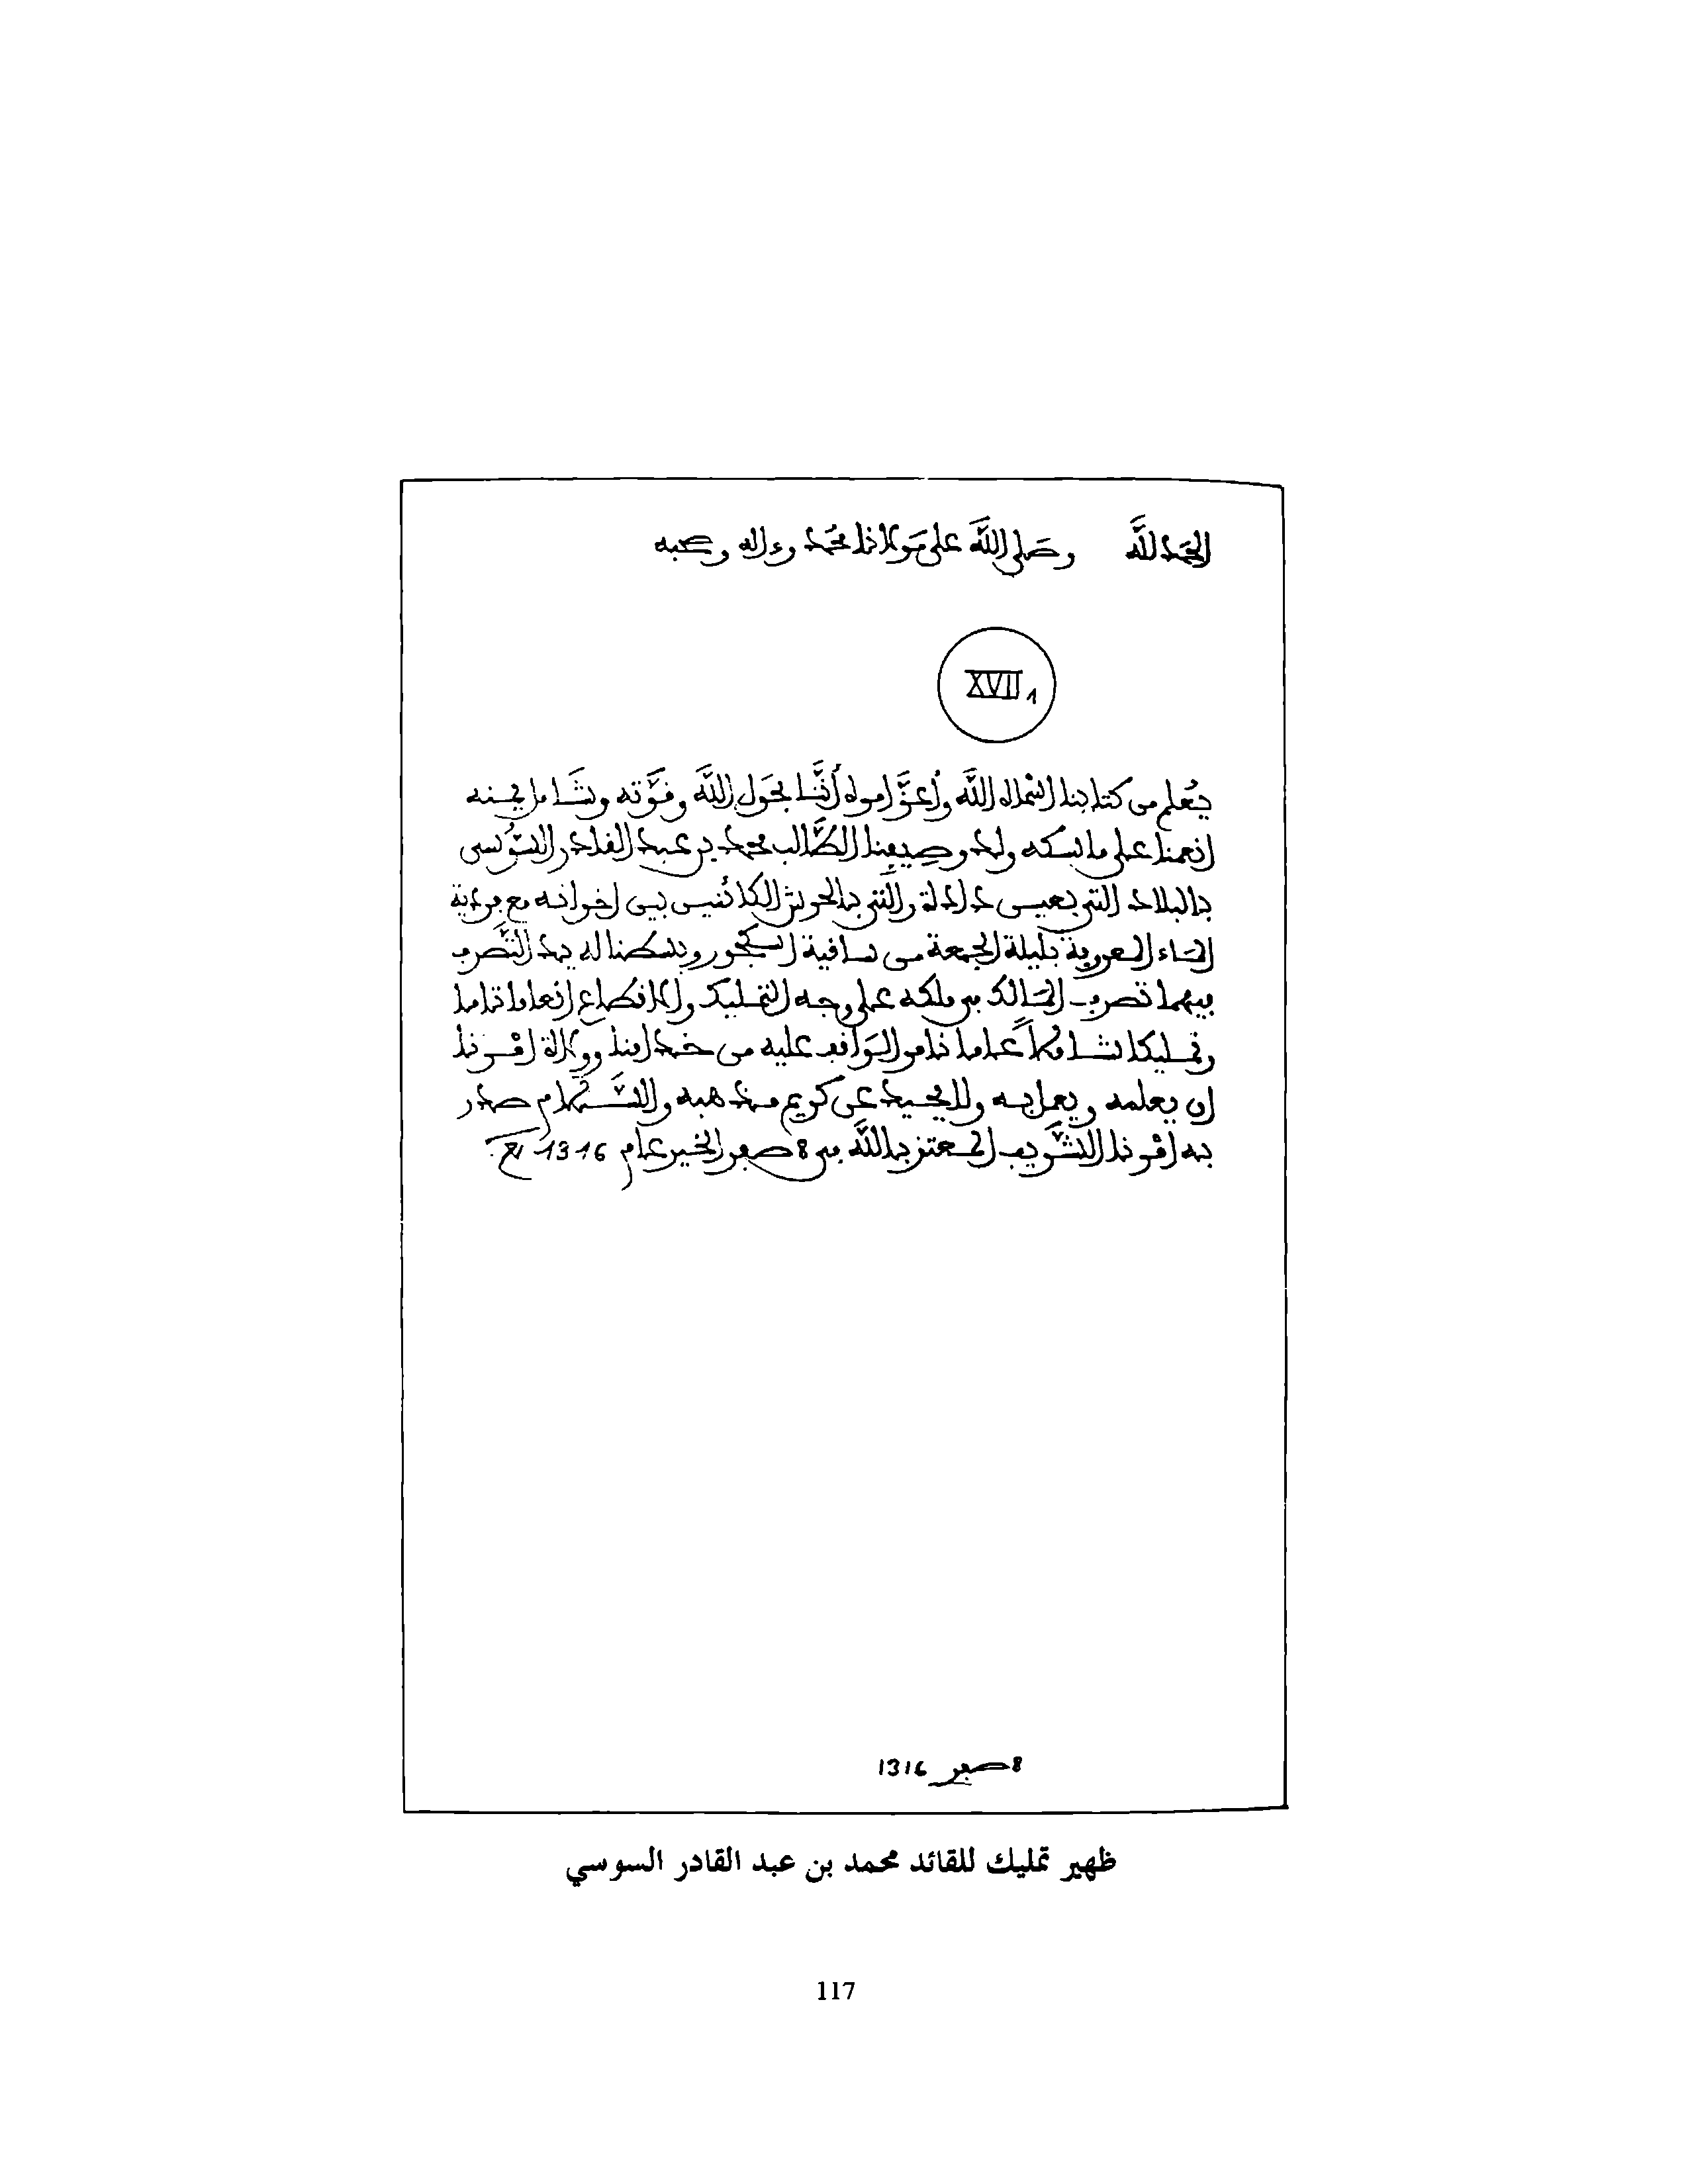 الحمد لله وصلى الله على مولانا محمد وءاله وصحبه
XVII 1
يُعلم من كتابنا أسماه الله وأعزَّ أمره أنَّنا بحَول الله وقوَّته وشامل يمنه
أنعمنا على ماسكه ولد وصيفنا الطَّالب محمد بن عبد القادر السُّوسي
بالبلاد التي بعيسى دادة والتي بالحوش الكائنين بين إخوانه مع فردية
الماء المعروفة بليلة الجمعة من ساقية وبسطنا له يد التَّصرف
فيهما تصرف المالك في ملكه على وجه التمليك والانقطاع إنعاما تاما
وتمليكا شاملاً عاما نامر الوَاقف عليه من خدامنا وولاة أمرنا
أن يعلمه ويعمل به ولا يحيد عن كريم مذهبه والسَّلام صدر
به أمرنا الشَّريف المعتز بالله في 8 صفر الخير عام 1316
8 صفر 1316
ظهير تمليك للقائد محمد بن عبد القادر السوسي
117